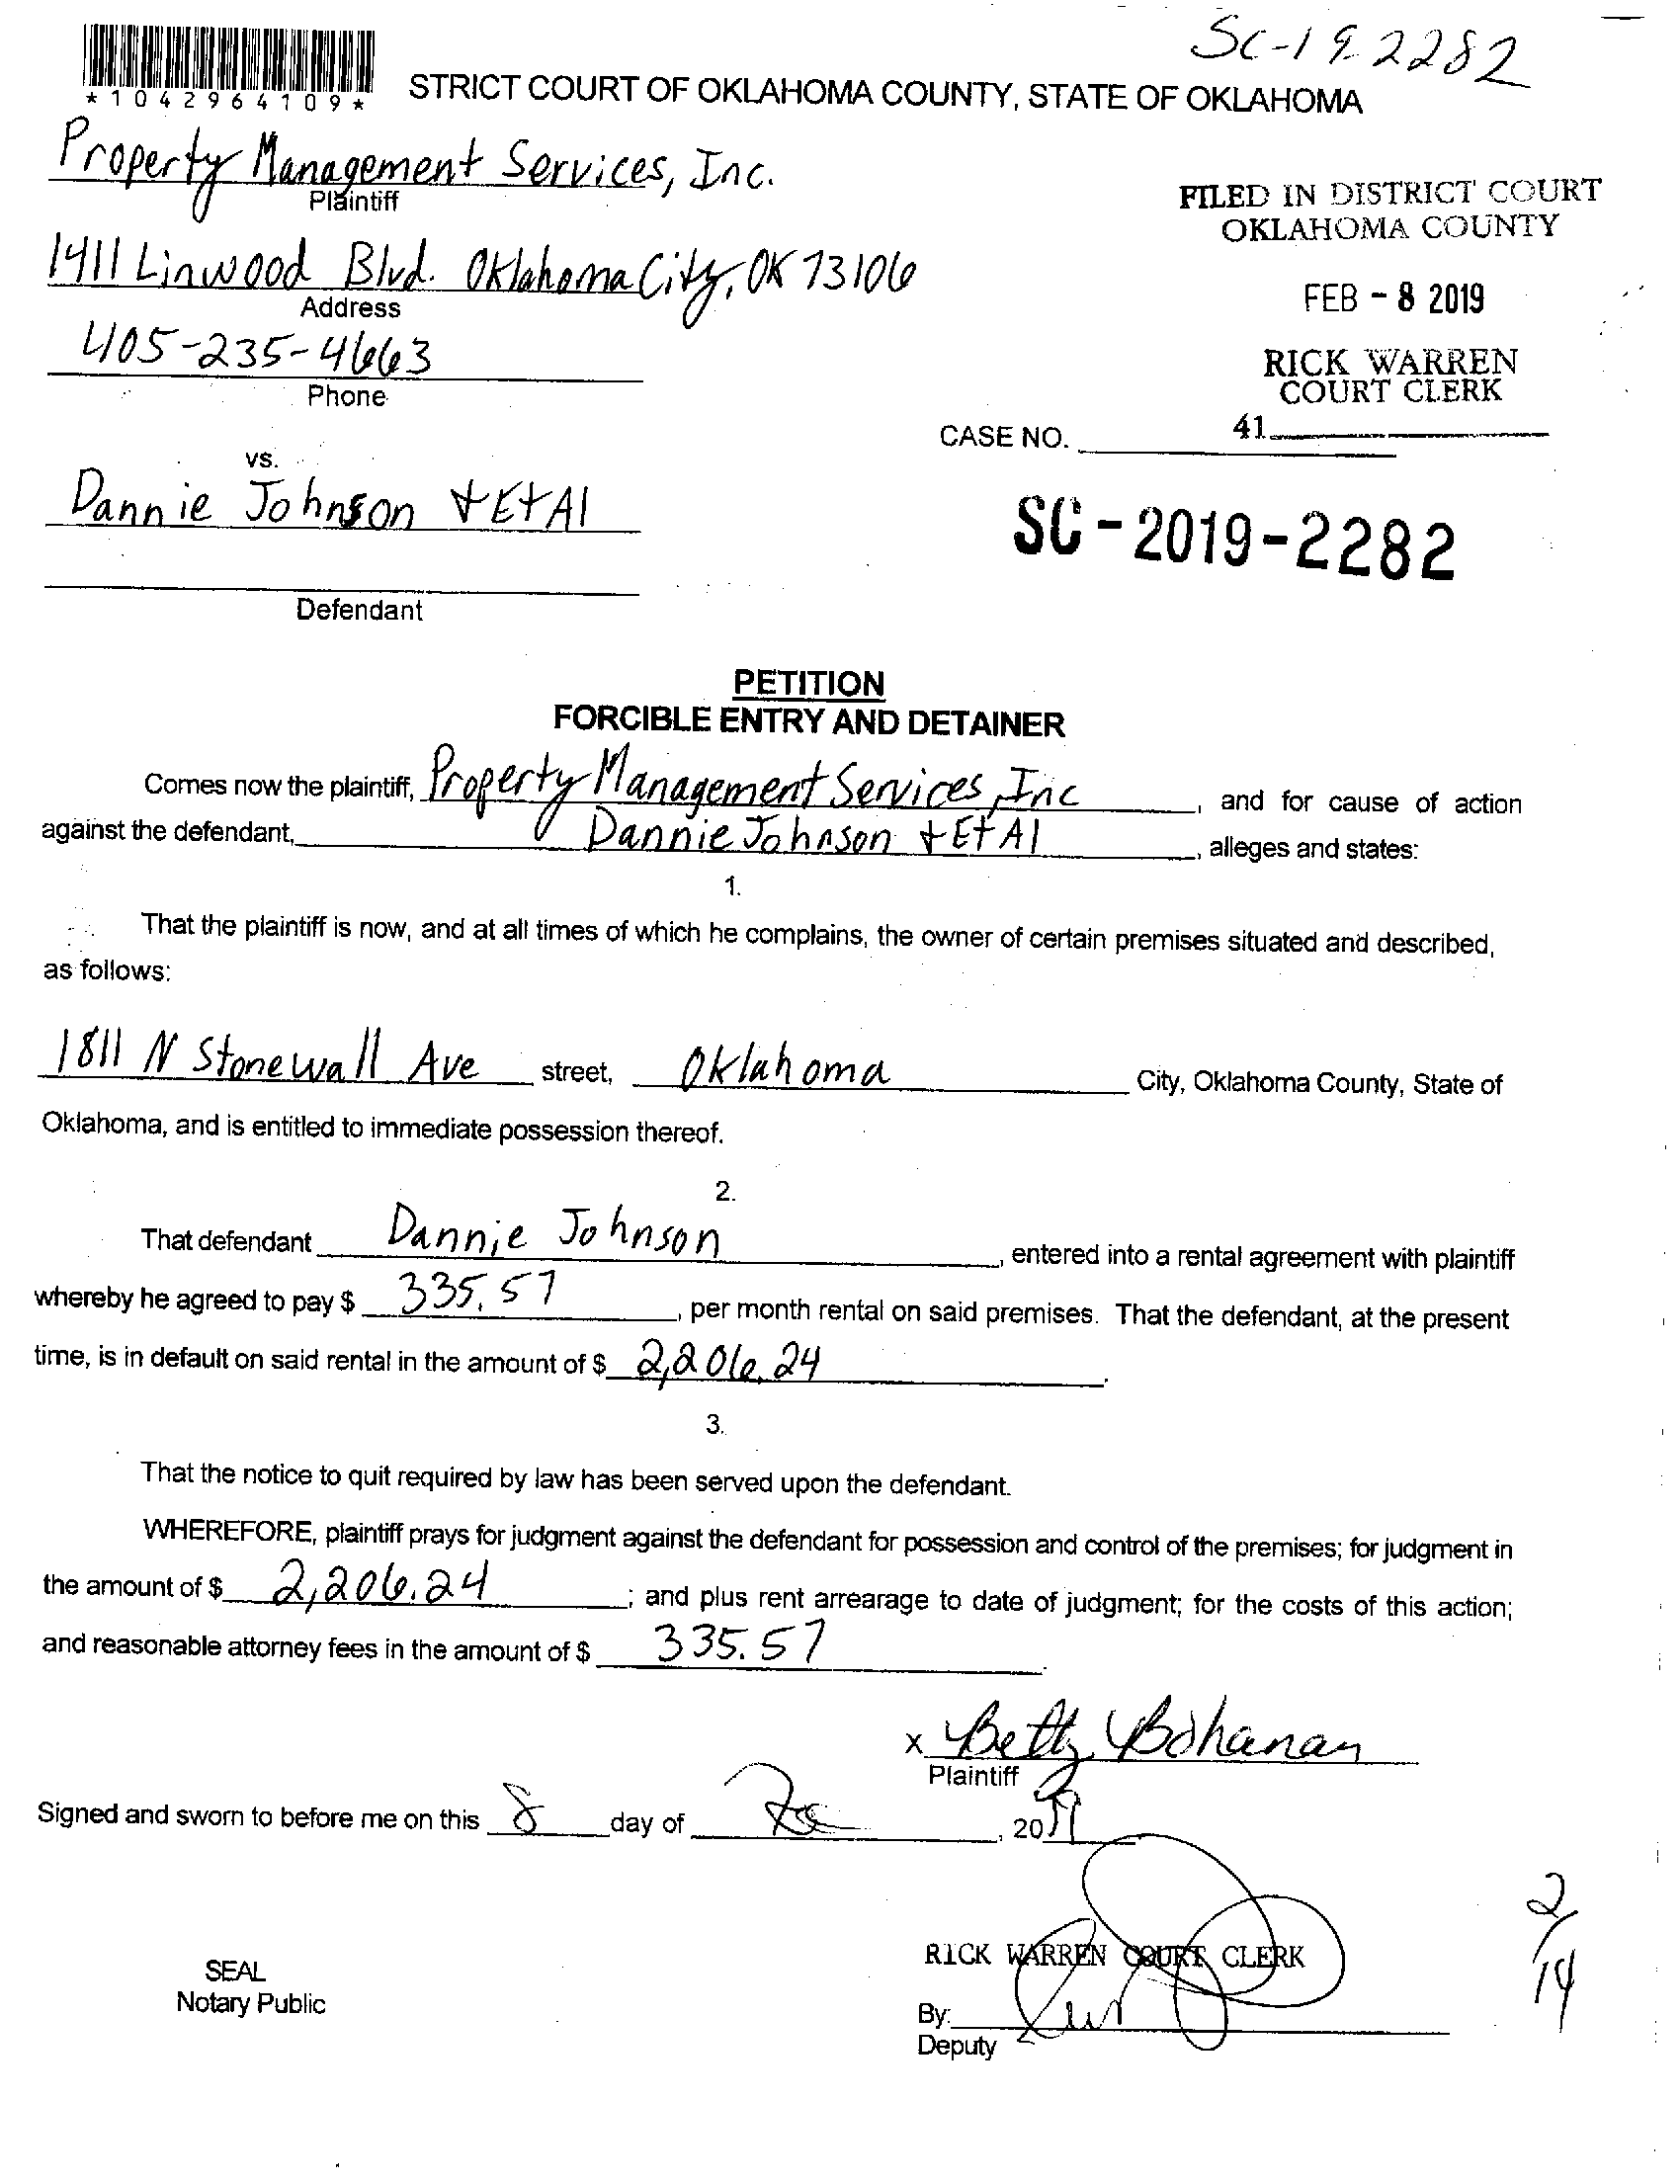 SC-19-2282
*1042964109*
STRICT COURT OF OKLAHOMA COUNTY, STATE OF OKLAHOMA
Property Management Services, Inc.
Plaintiff
FILED IN DISTRICT COURT
OKLAHOMA COUNTY
1411 Linwood Blvd. Oklahoma City, OK 73106
Address
FEB - 8 2019
405-235-4663
Phone
RICK WARREN
COURT CLERK
41
CASE NO.
vs.
Dannie Johnson + Et Al
SC-2019-2282
Defendant
PETITION
FORCIBLE ENTRY AND DETAINER
Comes now the plaintiff, Property Management Services, Inc , and for cause of action
against the defendant, Dannie Johnson + Et Al , alleges and states:
1.
That the plaintiff is now, and at all times of which he complains, the owner of certain premises situated and described,
as follows:
1811 N Stonewall Ave street, Oklahoma City, Oklahoma County, State of
Oklahoma, and is entitled to immediate possession thereof.
2.
That defendant Dannie Johnson , entered into a rental agreement with plaintiff
whereby he agreed to pay $ 335.57 , per month rental on said premises. That the defendant, at the present
time, is in default on said rental in the amount of $ 2,206.24 .
3.
That the notice to quit required by law has been served upon the defendant.
WHEREFORE, plaintiff prays for judgment against the defendant for possession and control of the premises; for judgment in
the amount of $ 2,206.24 ; and plus rent arrearage to date of judgment; for the costs of this action;
and reasonable attorney fees in the amount of $ 335.57 .
x Betty Bohanan
Plaintiff
Signed and sworn to before me on this 8 day of , 2019
2/14
RICK WARREN COURT CLERK
SEAL
Notary Public
By:
Deputy